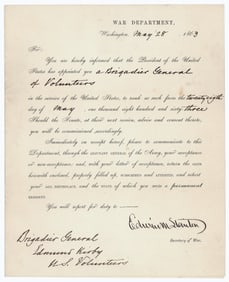 WAR DEPARTMENT,
Washington, May 28 1863
Sir:
You are hereby informed that the President of the United
States has appointed you a Brigadier General
of Volunteers
in the service of the United States, to rank as such from the twenty eighth
day of May, one thousand eight hundred and sixty three
Should the Senate, at their next session, advise and consent thereto,
you will be commissioned accordingly.
Immediately on receipt hereof, please to communicate to this
Department, through the ADJUTANT GENERAL of the Army, your acceptance
or non-acceptance; and, with your letter of acceptance, return the oath
herewith enclosed, properly filled up, SUBSCRIBED and ATTESTED, and report
your AGE, BIRTHPLACE, and the STATE of which you were a PERMANENT
RESIDENT.
You will report for duty to
Edwin M. Stanton
Secretary of War.
Brigadier General
Edmund Kirby
U.S. Volunteers